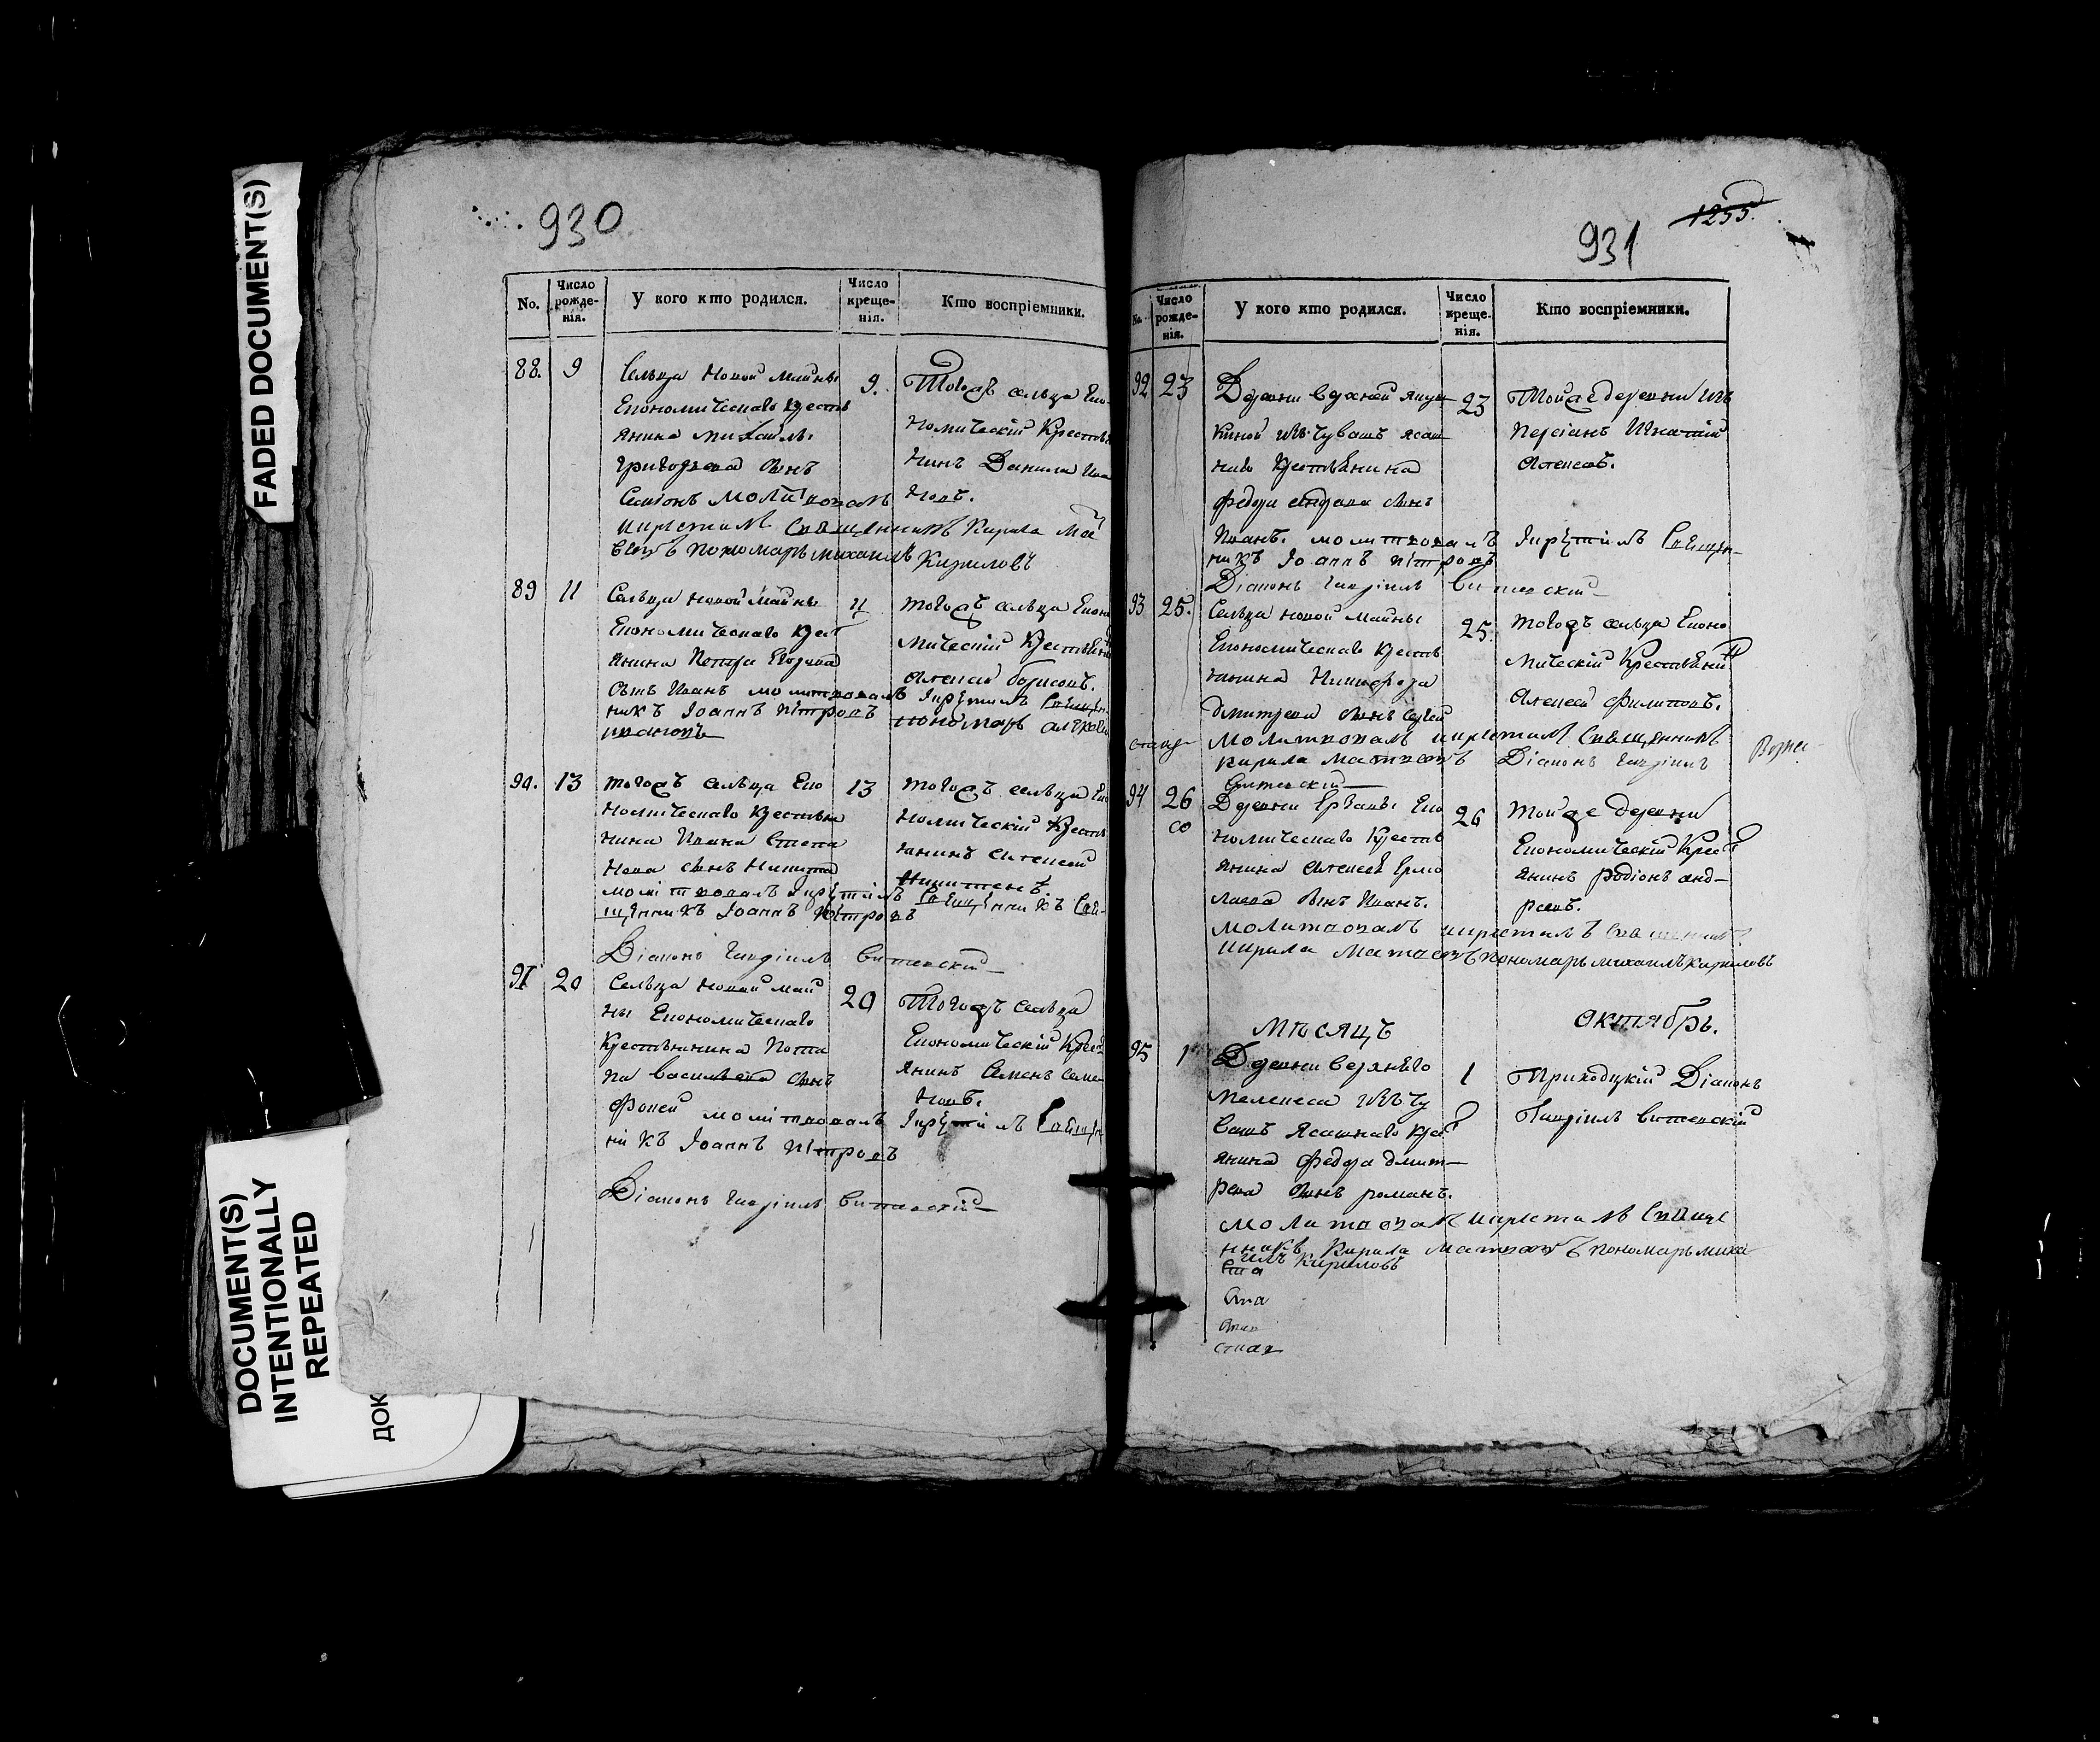 FADED DOCUMENT(S)
DOCUMENT(S)
INTENTIONALLY
REPEATED
ДОК
930
No.
Число рожденія.
У кого кто родился.
Число крещенія.
Кто воспріемники.
88. 9
Сельца Новой Майны
Економическаго крестъ
янина Михайлы
Григорьева сынъ
Семіонъ молитвовалъ
икрестилъ священникъ Кирила Мат
вѣевъ пономарь михаилъ Кириловъ
9.
Тогожъ сельца Еко
номическій Крестья
нинъ Данила Ива
новъ.
89 11
Сельца Новой Майны
Економическаго крест
янина Петра Егорова
сынъ Иванъ молитвовалъ Ікрѣстилъ Свѣщен
никъ Іоаннъ Пѣтровъ пономарь алѣксѣй
ивановъ
11
тогожъ сельца Еконо
мическій Крестьянин
Алексей борисовъ.
90. 13
тогожъ сельца Эко
номическаго Крестья
нина Ивана Степа
нова сынъ Никита
молітвовалъ икрѣстілъ Свѣщѣннікъ Свѣ
щѣннікъ Іоаннъ Пѣтровъ
Діаконъ Гавріилъ Витевскій
13
тогожъ сельца Еко
номическій Кресть
янинъ Алексей
Никитенъ.
91 20
Сельца Новой май
ны Економическаго
Крестьянина Пота
па Васильева сынъ
Фокей молітвовалъ Ікрѣстілъ Свѣщен
нікъ Іоаннъ Пѣтровъ
Діаконъ Гавріилъ Витевскій
20
Тогожъ Сельца
Економическій Крест
янинъ Семенъ Семе
новъ.
1255.
931
No.
Число рожденія.
У кого кто родился.
Число крещенія.
Кто воспріемники.
92 23
Деревни Верхней Якуш
киной изъ Чувашъ ясаш
наго Крестьянина
Федора сынъ
Иванъ. молитвовалъ Ікрѣстілъ Свѣщен
никъ Іоаннъ Пѣтровъ
Діаконъ Гавріилъ Витевскій
23
Тойже деревни изъ
Игнатій
Алексеевъ.
93 25.
Сельца Новой Майны
Економическаго Кресть
янина Никифора
дмитрева сынъ Сергей
молитвовалъ икрестилъ Священникъ
Кирила Матвеевъ Діаконъ Гавріилъ
Витевскій
25.
тогожъ сельца Еконо
мическій Крестьянин
Алексей Филиповъ.
94 26
Деревни Ерзовы Эко
номическаго Кресть
янина Алексея Ермо
лаева сынъ Иванъ.
молитвовалъ икрестилъ Священникъ
Кирила Матвеевъ пономарь михаилъ Кириловъ
26
Тойже деревни
Економическій Крест
янинъ Родіонъ анд
реевъ.
Мѣсяцъ Октябрь.
95 1
Деревни Верхняго
Мелекеса изъ Чу
вашъ Ясашнаго Крест
янина Федора дмит
рева сынъ романъ.
молитвовалъ икрестилъ Священ
никъ Кирила Матвеевъ пономарь миха
илъ Кириловъ
1
Приходцкій Діаконъ
Гавріилъ Витевскій